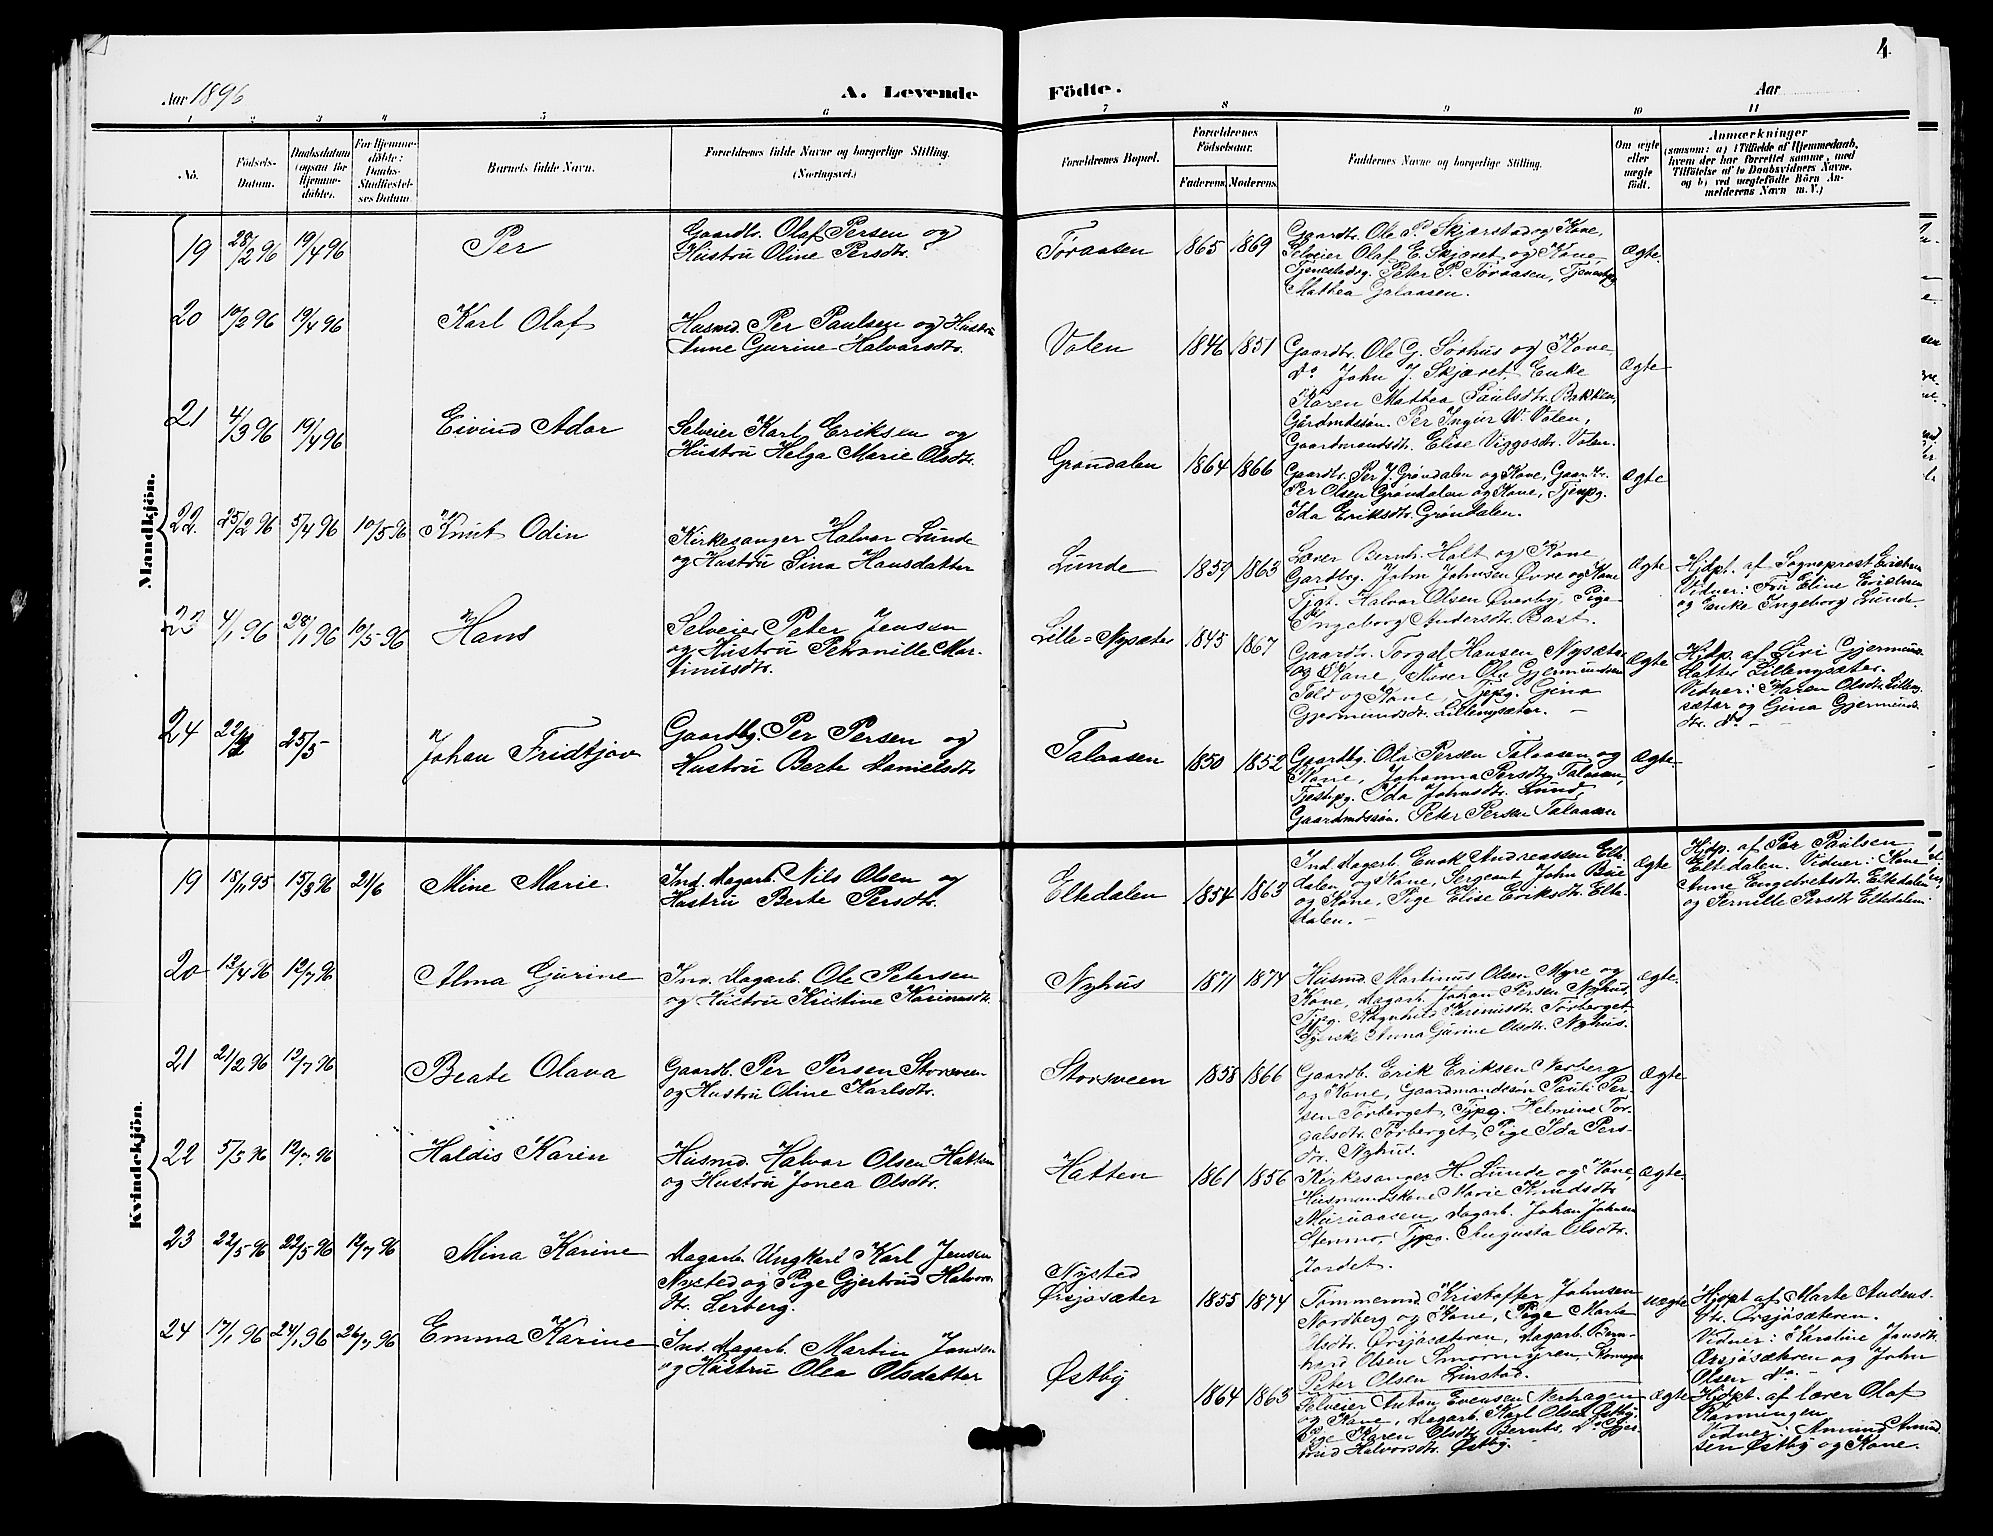 4
Aar 1896
A. Levende Födte.
Aar
1 2 3 4 5 6 7 8 9 10 11
No.
Födsels-
Datum.
Daabsdatum
(ogsaa for
Hjemme-
döbte).
For Hjemme-
döbte:
Daabs-
Stadfæstel-
ses Datum
Barnets fulde Navn.
Forældrenes fulde Navne og borgerlige Stilling.
(Næringsvei.)
Forældrenes Bopæl.
Forældrenes
Födselsaar.
Faderens. Moderens.
Faddernes Navne og borgerlige Stilling.
Om ægte
eller
uægte
födt.
Anmærkninger
(saasom: a) i Tilfælde af Hjemmedaab,
hvem der har forrettet samme, med
Tilföielse af to Daabsvidners Navne,
og b) ved uægtefödte Börn An-
melderens Navn m. V.)
Mandkjön.
19 28/2 96 19/4 96 Per
Gaardbr. Olaf Persen og
Hustru Oline Persdtr.
Töraasen 1865 1869
Gaardbr. Ole P. Skjærstad og Kone,
Selveier Olaf E. Skjæret og Kone,
Peter P. Töraasen, Tjenestepg.
Mathea
Ægte.
20 10/2 96 19/4 96 Karl Olaf
Husmd. Per Paulsen og Hustru
Anne Gurine Halvorsdtr.
Volen 1846 1851
Gaardbr. Ole G. Sörhus og Kone,
do John J. Skjæret, Enke
Karen Mathea Paulsdtr. Bakken,
Gårdmdssön. Per Ingur W. Volen,
Gaardmandsdtr. Elise Viggosdtr. Volen.
Ægte
21 4/3 96 19/4 96 Eivind Ador
Selveier Karl Eriksen og
Hustru Helga Marie Olsdtr.
Gröndalen 1864 1866
Gaardbr. Per J. Gröndalen og Kone, Gaardbr.
Per Olsen Gröndalen og Kone, Tjenpg.
Ida Eriksdtr. Gröndalen.
Ægte
22. 25/2 96 5/4 96 10/5 96 Knut Odin
Kirkesanger Halvor Lunde
og Hustru Sina Hansdatter
Lunde 1859 1863
Lærer Bernh. Holt og Kone,
Gardbrg. John Johnsen Övre og Kone
Tjgt. Halvor Olsen Överby, Pige
Ingeborg Andersdtr. Bast.
Ægte
Hjdpt. af Sogneprest Erichsen
Vidner: Fru Eline Erichsen
og Enke Ingeborg Lunde.
23 4/1 96 28/1 96 10/5 96 Hans
Selveier Peter Jensen
og Hustru Petronille Mar-
tinusdtr.
Lille-Nysæter 1845 1867
Gaardbr. Torgal Hansen Nysæter
og Kone, Skover Ole Gjermundsen
Told og Kone, Tjpg. Gina
Gjermundsdtr. Lillenysæter. -
Ægte
Hjdp. af Siri Gjermunds-
datter Lillenysæter.
Vidner: Karen Olsdtr. Lilleny-
sæter og Gina Gjermunds-
dtr. do -
24 25/5 - Johan Fridtjov
Gaardbg. Per Persen og
Hustru Berte Danielsdtr
Talaasen 1850 1852
Gaardbg. Ola Persen Talaasen og
Kone, Johanna Persdtr. Talaasen,
Tjestpg. Ida Johnsdtr. Lund,
Gaardmdssön. Peter Persen Talaasen
Ægte.
Kvindekjön.
19 18/11 95 15/3 96 21/6 Mine Marie
Ind. Dagarb. Nils Olsen og
Hustru Berte Persdtr.
Eltedalen 1854 1863
Ind. Dagarb. Enok Andreassen Elte-
dalen og Kone, Sergeant John
og Kone, Pige Elise Eriksdtr. Elte-
dalen. -
Ægte
Hjdp. af Per Paulsen
Eltedalen. Vidner: Kone
Anne Engebretsdtr. Eltedalen
og Pernille Persdtr Eltedalen.
20 12/4 96 12/7 96 Alma Gurine
Ind. Dagarb. Ole Petersen
og Hustru Kristine Karinusdtr.
Nyhus 1871 1874
Husmd. Martinus Olsen Myre og
Kone, Dagarb. Johan Persen Nyhus,
Tjpg. Ragnhild Karinusdtr. Törberget,
Syerske Anna Gurine Olsdtr. Nyhus.
Ægte.
21 21/2 96 12/7 96 Beate Olava
Gaardb. Per Persen Storsveen
og Hustru Oline Karlsdtr.
Storsveen 1858 1866
Gaardb. Erik Eriksen Norberg
og Kone, Gaardmandssön Paul Per-
sen Törberget, Tjpg. Helmine Tor-
galsdtr. Törberget, Pige Ida Pers-
dtr. Nyhus.
Ægte.
22 5/5 96 12/7 96 Haldis Karin
Husmd. Halvor Olsen Hatten
og Hustru Jonea Olsdtr.
Hatten 1861 1856
Kirkesanger H. Lunde og Kone,
Husmandskone Marie Knudsdtr
Muruaasen, Dagarb. Johan Johnsen
Stenmo, Tjpg. Augusta Olsdtr.
Jordet.
Ægte.
23 22/5 96 22/5 96 12/7 96 Mina Karine
Dagarb. Ungkarl Karl Jensen
Nysted og Pige Gjertrud Halvors-
dtr. Lerberg.
Nysted
Örsjösæter 1855 1874
Tömmermd. Kristoffer Johnsen
Nordberg og Kone, Pige Marte
Olsdtr. Örsjösæteren, Dagarb. Bern-
hard Olsen Smörmyren,
Peter Olsen Linstad.
uægte
Hjdpt af Marte Anders-
dtr. Örsjösæteren.
Vidner: Karoline Jensdtr.
Örsjösæteren og John
Olsen do. -
24 17/1 96 24/1 96 26/7 96 Emma Karine
Ind. Dagarb. Martin Jensen
og Hustru Olea Olsdatter
Östby 1864 1863
Selveier Anton Evensen Nerhagen
og Kone, Dagarb. Karl Olsen Östby,
Pige Karen Olsdtr. Bernts, do Gjer-
trud Halvorsdtr. Östby.
Ægte
Hjdpt. af lærer Olaf
Rönningen
Vidner: Amund Amund-
sen Östby og Kone.